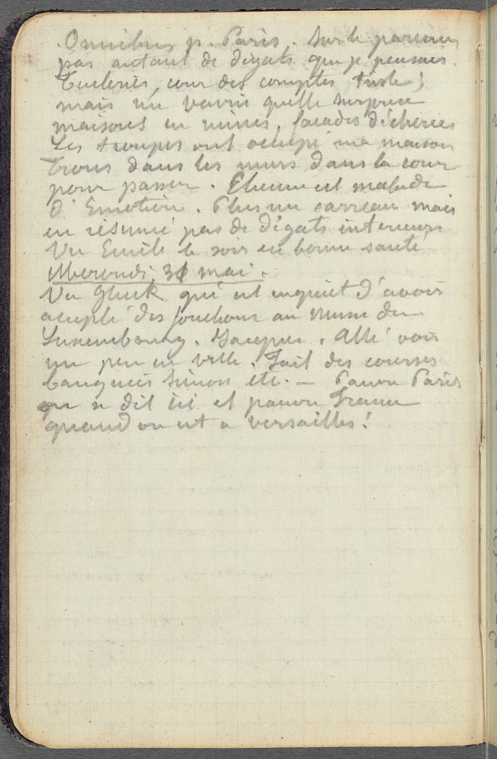 Omnibus p. Paris. Sur le parcours
pas autant de dégats que je pensais.
Tuileries, cour des comptes triste;
mais un voisin quelle surprise
maisons en ruines, façades déchirées
Les troupes ont occupé ma maison
Trous dans les murs dans la cour
pour passer. Etienne est malade
d'Emotion. Plus un carreau mais
en résumé pas de dégats interieurs
Vu Emile le soir en bonne santé
Mercredi 31 mai.
Vu Gluck qui est inquiet d'avoir
accepté des fonctions au Musée du
Luxembourg. Jacque. Allé voir
un peu en ville. Fait des courses
banquiers Simon etc. — Pauvre Paris
on se dit ici et pauvre France
quand on est a Versailles!